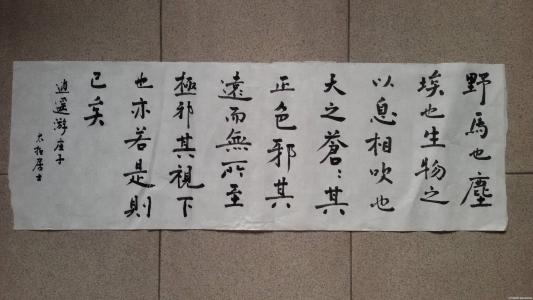 野馬也塵
埃也生物之
以息相吹也
天之蒼〻其
正色邪其
遠而無所至
極邪其視下
也亦若是則
已矣
逍遥游庄子
居士